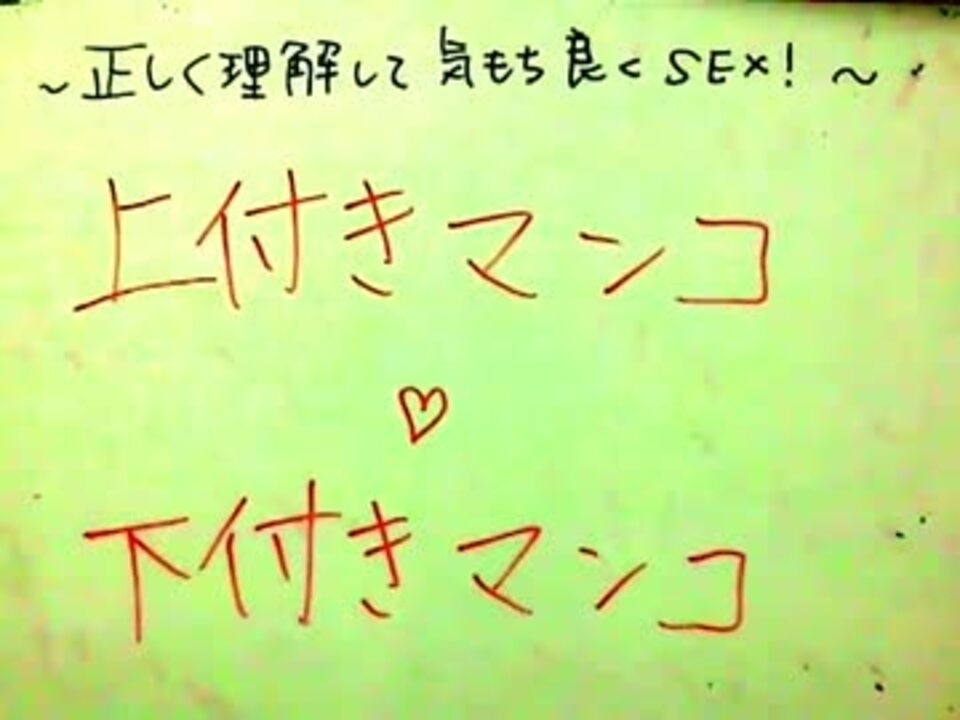 ～正しく理解して気もち良くSEX!～
上付きマンコ
♡
下付きマンコ